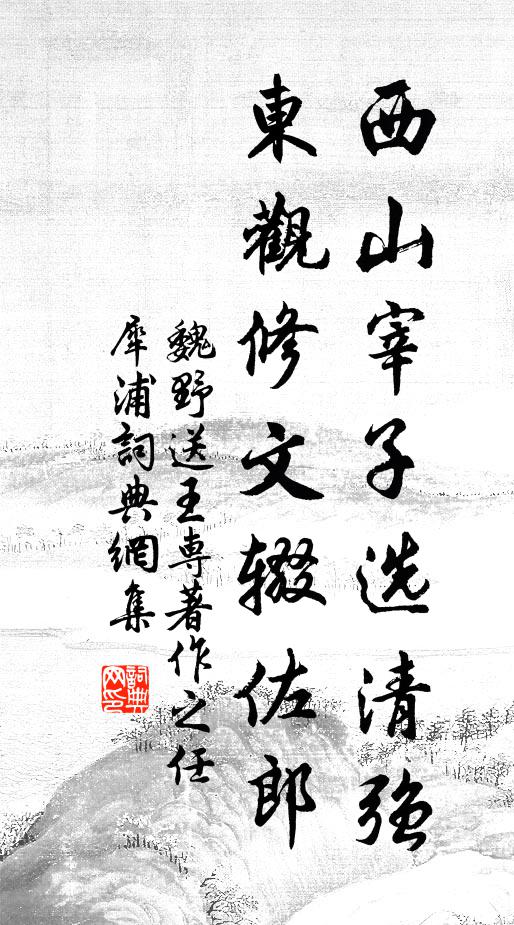 西山宰子选清强
東觀修文辍佐郎
魏野送王専著作之任
犀浦詞典網集
詞典网印